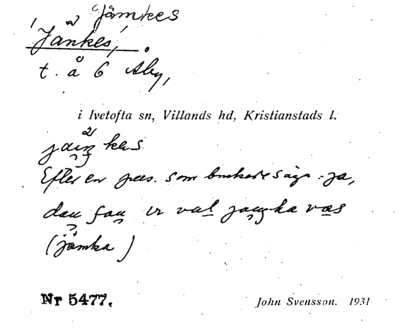 Jämkes
Jankes,
t. å 6 Åby,
i Ivetofta sn, Villands hd, Kristianstads l.
kes
Efter en pers. som brukade säga: ja,
dan är val ka vas
(jämka)
Nr 5477. John Svensson. 1931